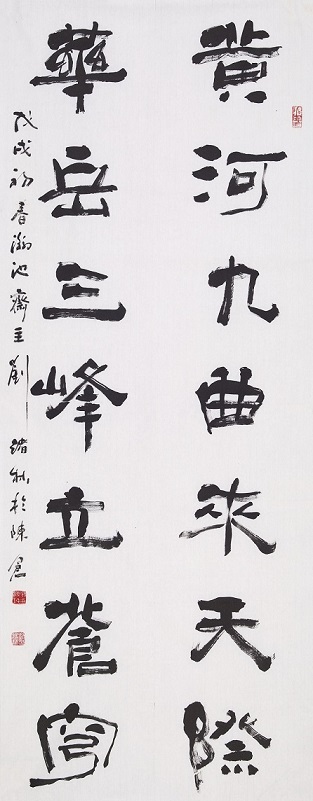 黄河九曲来天際
華岳三峰立蒼穹
戊戌初春瀚池齋主劉緒於陳倉